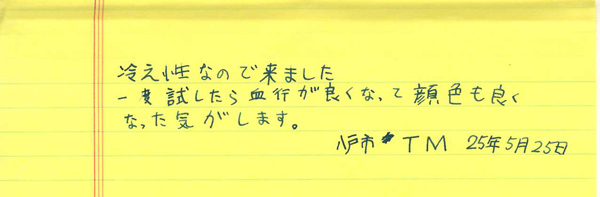 冷え性なので来ました
一度試したら血行が良くなって顔色も良く
なった気がします。
八戸市 TM 25年5月25日